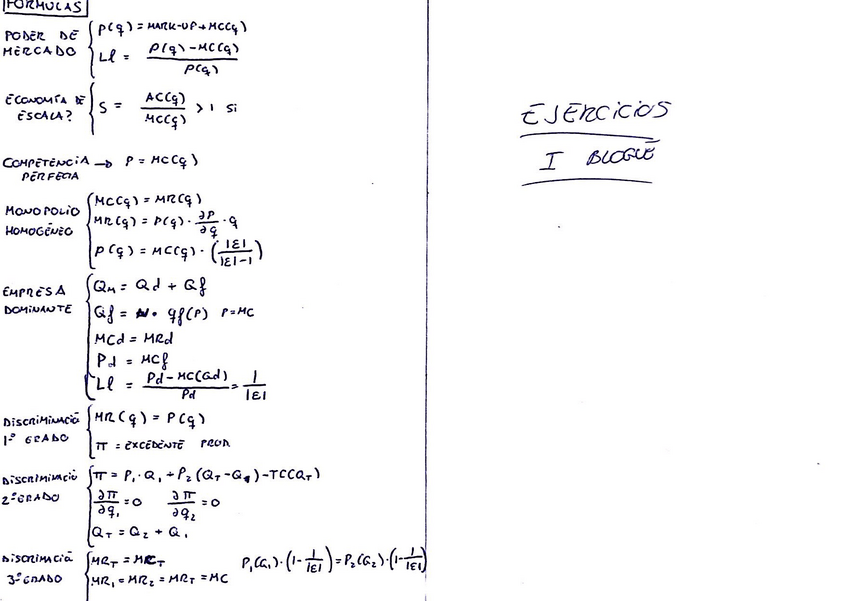 FORMULAS
PODER DE MERCADO
P(q) = MARK-UP + MC(q)
Ll = P(q) - MC(q) / P(q)
ECONOMÍA DE ESCALA?
S = AC(q) / MC(q) > 1 si
COMPETENCIA PERFECTA → P = MC(q)
MONOPOLIO HOMOGÉNEO
MC(q) = MR(q)
MR(q) = P(q) · ∂P/∂q · q
P(q) = MC(q) · (|ε| / |ε|-1)
EMPRESA DOMINANTE
QM = Qd + Qf
Qf = N · qf(P) P=MC
MCd = MRd
Pd = MCf
Ll = Pd - MC(Qd) / Pd = 1 / |ε|
DISCRIMINACIÓ 1º GRADO
MR(q) = P(q)
π = EXCEDENTE PROD
DISCRIMINACIÓ 2º GRADO
π = P1 · Q1 + P2 (QT - Q1) - TC(QT)
∂π/∂q1 = 0 ∂π/∂q2 = 0
QT = Q2 + Q1
DISCRIMACIÓ 3º GRADO
MRT = MCT
MR1 = MR2 = MRT = MC
P1(Q1) · (1 - 1/|ε|) = P2(Q2) · (1 - 1/|ε|)
EJERCICIOS
I BLOQUE